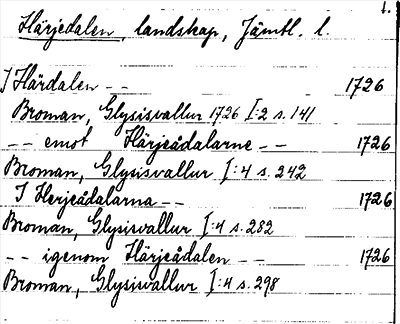 1.
Härjedalen, landskap, Jämtl. l.
I Härdalen -- 1726
Broman, Glysisvallur 1726 I:2 s. 141
-- emot Härjeådalarne -- 1726
Broman, Glysisvallur I:4 s. 242
I Herjeådalarna -- 1726
Broman, Glysisvallur I:4 s. 282
-- igenom Härjeådalen -- 1726
Broman, Glysisvallur I:4 s. 298